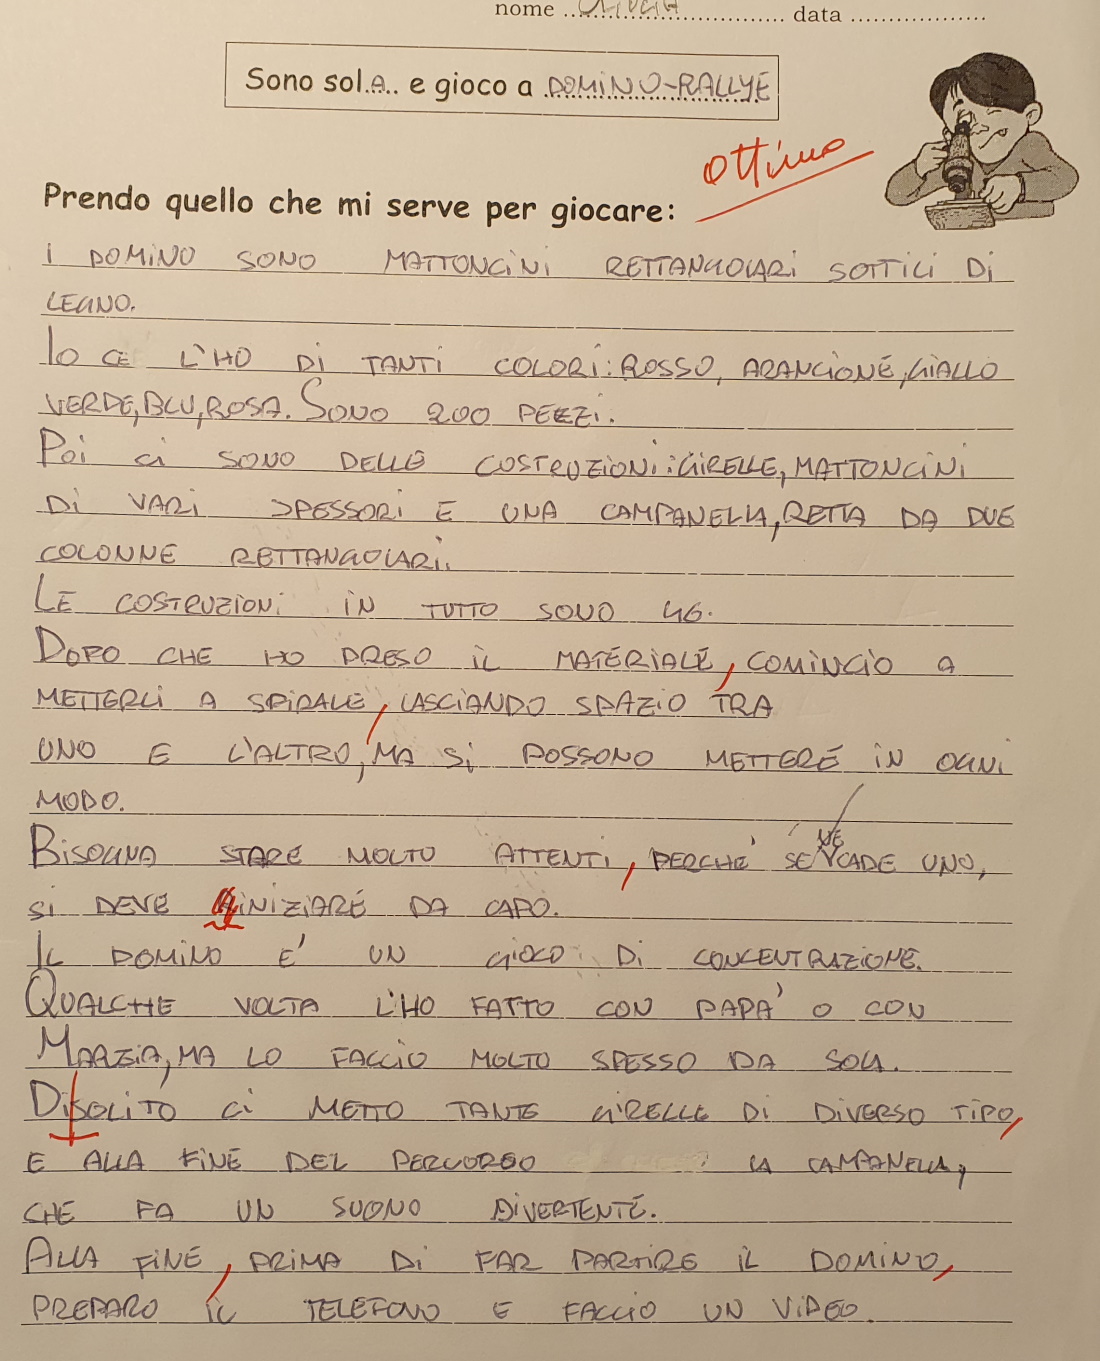 nome .......... data ..........
Sono sol.A.. e gioco a DOMINO-RALLYE
Ottimo
Prendo quello che mi serve per giocare:
I DOMINO SONO MATTONCINI RETTANGOLARI SOTTILI DI
LEGNO.
IO CE L'HO DI TANTI COLORI: ROSSO, ARANCIONE, GIALLO
VERDE, BLU, ROSA. SONO 200 PEZZI.
POI CI SONO DELLE COSTRUZIONI: GIRELLE, MATTONCINI
DI VARI SPESSORI E UNA CAMPANELLA, RETTA DA DUE
COLONNE RETTANGOLARI.
LE COSTRUZIONI IN TUTTO SONO 46.
DOPO CHE HO PRESO IL MATERIALE, COMINCIO A
METTERLI A SPIRALE, LASCIANDO SPAZIO TRA
UNO E L'ALTRO, MA SI POSSONO METTERE IN OGNI
MODO.
BISOGNA STARE MOLTO ATTENTI, PERCHÉ SE NE CADE UNO,
SI DEVE INIZIARE DA CAPO.
IL DOMINO E' UN GIOCO DI CONCENTRAZIONE.
QUALCHE VOLTA L'HO FATTO CON PAPA' O CON
MARZIA, MA LO FACCIO MOLTO SPESSO DA SOLA.
DI|SOLITO CI METTO TANTE GIRELLE DI DIVERSO TIPO,
E ALLA FINE DEL PERCORSO LA CAMPANELLA,
CHE FA UN SUONO DIVERTENTE.
ALLA FINE, PRIMA DI FAR PARTIRE IL DOMINO,
PREPARO IL TELEFONO E FACCIO UN VIDEO.